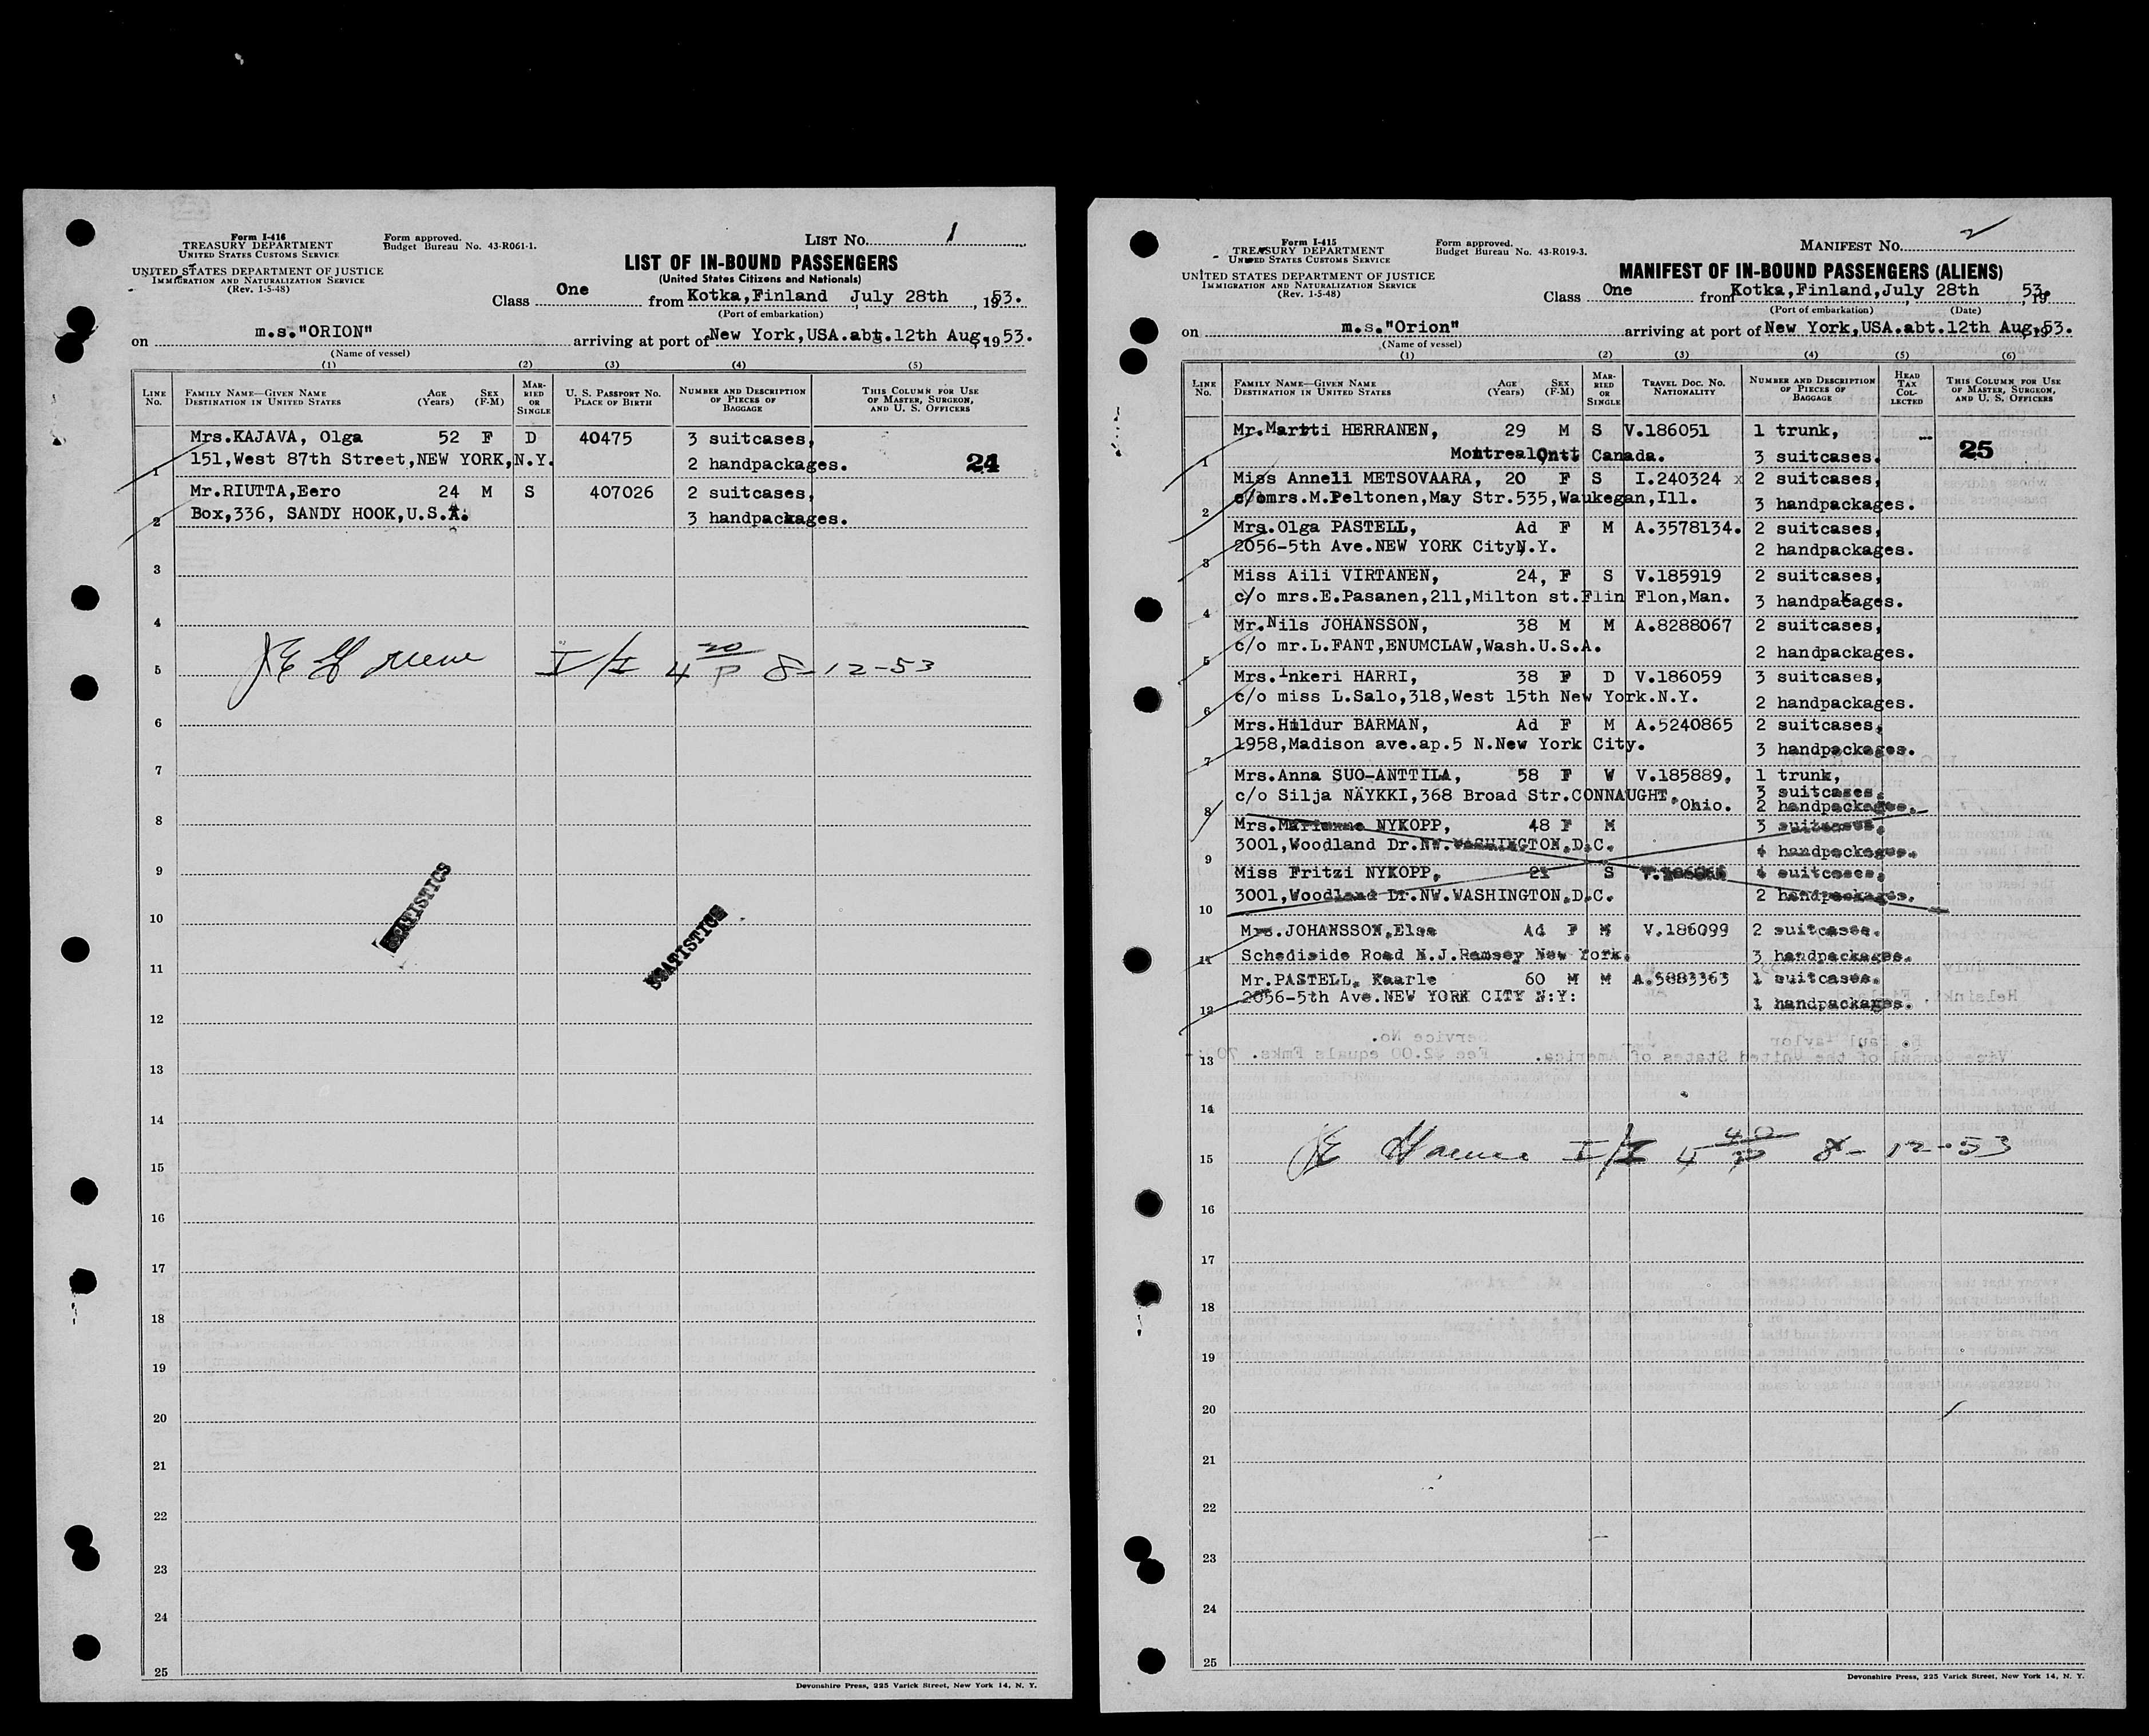 Form I-416
TREASURY DEPARTMENT
UNITED STATES CUSTOMS SERVICE
UNITED STATES DEPARTMENT OF JUSTICE
IMMIGRATION AND NATURALIZATION SERVICE
(Rev. 1-5-48)
Form approved.
Budget Bureau No. 43-R061-1.
LIST No. 1
LIST OF IN-BOUND PASSENGERS
(United States Citizens and Nationals)
Class One from Kotka,Finland July 28th , 1953.
(Port of embarkation)
on m.s."ORION" arriving at port of New York,USA.abt.12th Aug. 1953.
(Name of vessel)
(1) (2) (3) (4) (5)
LINE No. FAMILY NAME—GIVEN NAME DESTINATION IN UNITED STATES AGE (Years) SEX (F-M) MARRIED OR SINGLE U. S. PASSPORT No. PLACE OF BIRTH NUMBER AND DESCRIPTION OF PIECES OF BAGGAGE THIS COLUMN FOR USE OF MASTER, SURGEON, AND U. S. OFFICERS
Mrs.KAJAVA, Olga 52 F D 40475 3 suitcases,
1 151,West 87th Street,NEW YORK,N.Y. 2 handpackages. 24
Mr.RIUTTA,Eero 24 M S 407026 2 suitcases,
2 Box,336, SANDY HOOK,U.S.A. 3 handpackages.
3
4
5 I/I 4 20/P 8-12-53
6
7
8
9
STATISTICS
10
STATISTICS
11
12
13
14
15
16
17
18
19
20
21
22
23
24
25
Devonshire Press, 225 Varick Street, New York 14, N. Y.
Form I-415
TREASURY DEPARTMENT
UNITED STATES CUSTOMS SERVICE
UNITED STATES DEPARTMENT OF JUSTICE
IMMIGRATION AND NATURALIZATION SERVICE
(Rev. 1-5-48)
Form approved.
Budget Bureau No. 43-R019-3.
MANIFEST No. 2
MANIFEST OF IN-BOUND PASSENGERS (ALIENS)
Class One from Kotka,Finland,July 28th , 1953.
(Port of embarkation) (Date)
on m.s."Orion" arriving at port of New York,USA.abt.12th Aug. 1953.
(Name of vessel)
(1) (2) (3) (4) (5) (6)
LINE No. FAMILY NAME—GIVEN NAME DESTINATION IN UNITED STATES AGE (Years) SEX (F-M) MARRIED OR SINGLE TRAVEL DOC. No. NATIONALITY NUMBER AND DESCRIPTION OF PIECES OF BAGGAGE HEAD TAX COLLECTED THIS COLUMN FOR USE OF MASTER, SURGEON, AND U. S. OFFICERS
Mr.Martti HERRANEN, 29 M S V.186051 1 trunk,
1 Montreal Ontt Canada. 3 suitcases. 25
Miss Anneli METSOVAARA, 20 F S I.240324 x 2 suitcases,
2 c/o mrs.M.Peltonen,May Str.535,Waukegan,Ill. 3 handpackages.
Mrs.Olga PASTELL, Ad F M A.3578134. 2 suitcases,
3 2056-5th Ave.NEW YORK City N.Y. 2 handpackages.
Miss Aili VIRTANEN, 24, F S V.185919 2 suitcases,
4 c/o mrs.E.Pasanen,211,Milton st.Flin Flon,Man. 3 handpakages.
Mr.Nils JOHANSSON, 38 M M A.8288067 2 suitcases,
5 c/o mr.L.FANT,ENUMCLAW,Wash.U.S.A. 2 handpackages.
Mrs.Inkeri HARRI, 38 F D V.186059 3 suitcases,
6 c/o miss L.Salo,318,West 15th New York.N.Y. 2 handpackages.
Mrs.Hildur BARMAN, Ad F M A.5240865 2 suitcases,
7 1958,Madison ave.ap.5 N.New York City. 3 handpackages.
Mrs.Anna SUO-ANTTILA, 58 F W V.185889, 1 trunk,
c/o Silja NÄYKKI,368 Broad Str.CONNAUGHT, 3 suitcases,
8 Ohio. 2 handpackages.
Mrs.Marianne NYKOPP, 48 F M 3 suitcases,
9 3001,Woodland Dr.NW.WASHINGTON,D.C. 4 handpackages.
Miss Fritzi NYKOPP, 21 S 4 suitcases,
10 3001,Woodland Dr.NW.WASHINGTON,D.C. 2 handpackages.
Mrs.JOHANSSON,Elsa Ad F M V.186099 2 suitcases.
11 Schediside Road N.J.Ramsey New York. 3 handpackages.
Mr.PASTELL, Kaarle 60 M M A.5883363 1 suitcases.
12 2056-5th Ave.NEW YORK CITY N:Y: 1 handpackages.
13
14
15 I/I 4 40/P 8-12-53
16
17
18
19
20
21
22
23
24
25
Devonshire Press, 225 Varick Street, New York 14, N. Y.